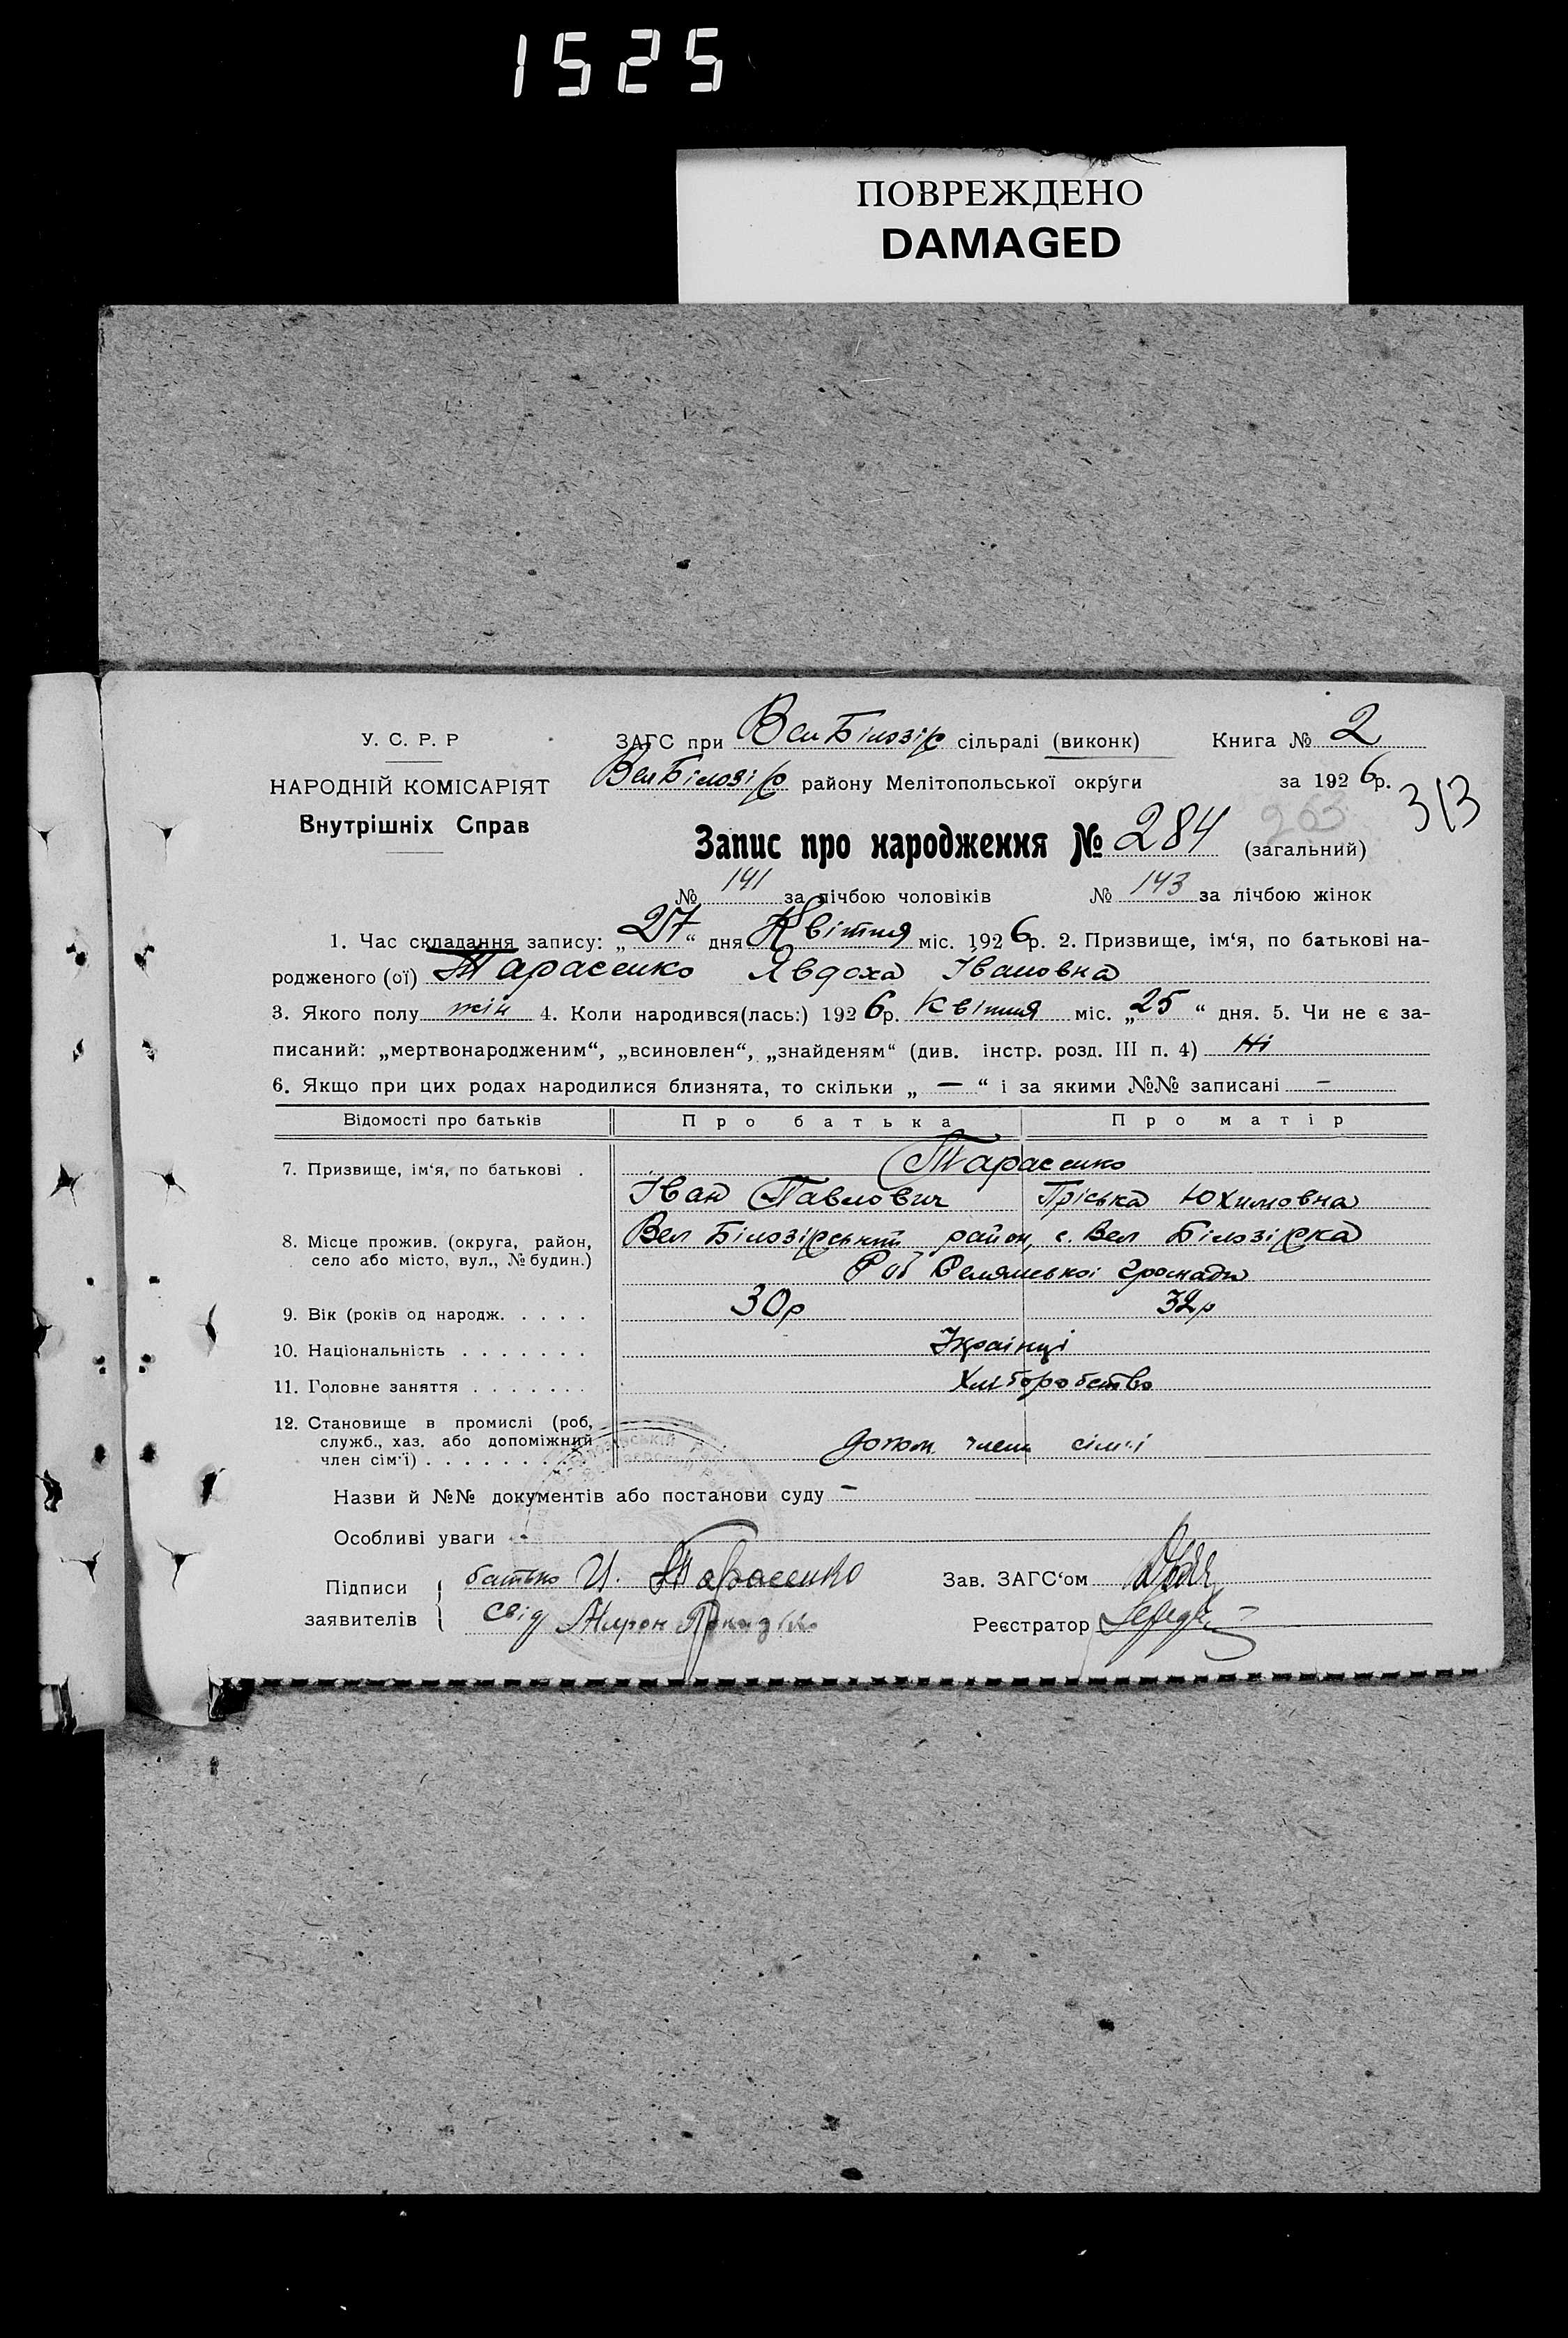 1525
ПОВРЕЖДЕНО
DAMAGED
У. С. Р. Р
НАРОДНІЙ КОМІСАРІЯТ
Внутрішніх Справ
ЗАГС при Вел Білозір сільраді (виконк)
Книга № 2
Вел Білозір району Мелітопольської округи
за 1926р.
313
263
Запис про народження № 284 (загальний)
№ 141 за лічбою чоловіків № 143 за лічбою жінок
1. Час складання запису: „27“ дня Квітня міс. 1926р. 2. Призвище, ім‘я, по батькові на-
родженого (ої) Тарасенко Явдоха Івановна
3. Якого полу жін 4. Коли народився(лась:) 1926р. Квітня міс. „25“ дня. 5. Чи не є за-
писаний: „мертвонародженим“, „всиновлен“, „знайденям“ (див. інстр. розд. III п. 4) Ні
6. Якщо при цих родах народилися близнята, то скільки „ — “ і за якими №№ записані —
Відомості про батьків Про батька Про матір
7. Призвище, ім‘я, по батькові . Тарасенко
Іван Павлович Пріська Юхимовна
8. Місце прожив. (округа, район, село або місто, вул., № будин.) Вел Білозірський район, с. Вел Білозірка
громади
9. Вік (років од народж. . . . . 30р 32р
10. Національність . . . . . . . Українці
11. Головне заняття . . . . . . . Хліборобство
12. Становище в промислі (роб,
служб., хаз. або допоміжний
член сім‘ї) . . . . . . . . . допом. члени сімї
Назви й №№ документів або постанови суду —
Особливі уваги -
Підписи заявителів
батько И. Тарасенко
Свід Мирон
Зав. ЗАГС‘ом
Реєстратор